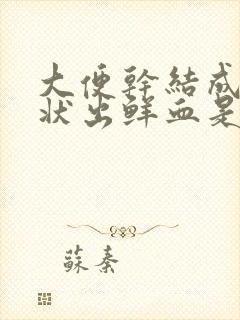 大便幹結成
狀出鮮血是
蘇秦